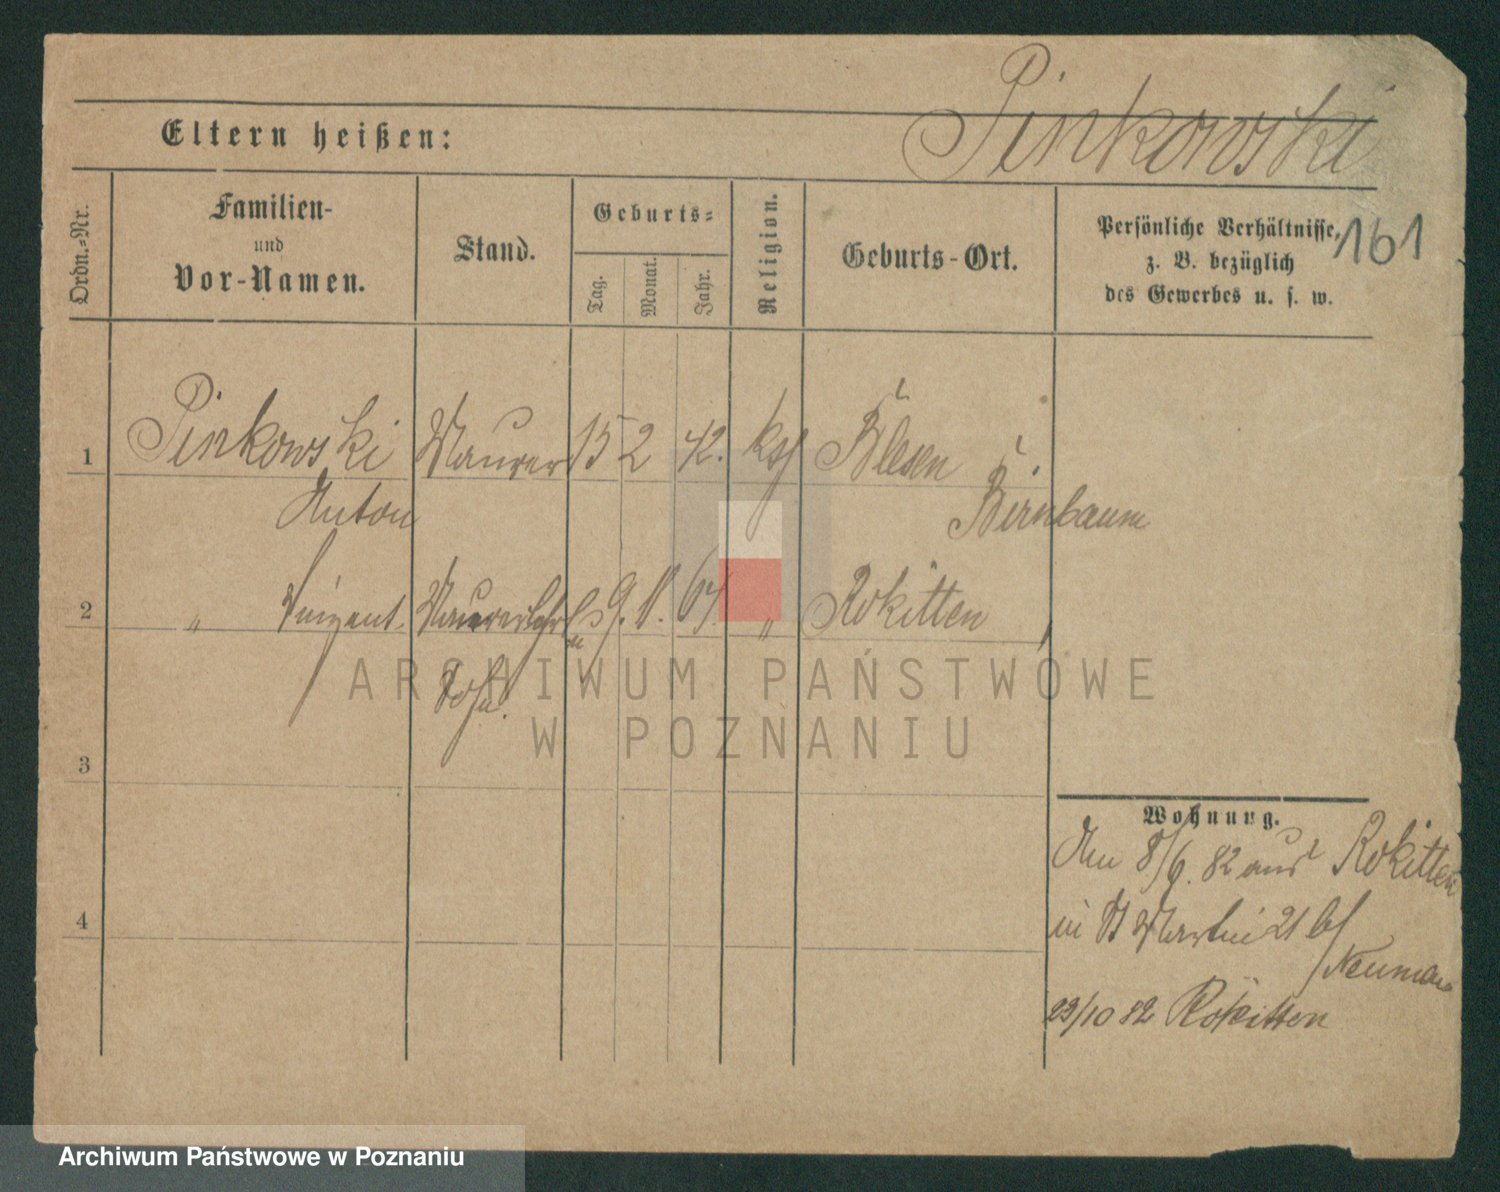 Pinkowski
Eltern heißen:
Ordn.=Nr.
Familien-
und
Vor-Namen.
Stand.
Geburts=
Tag.
Monat.
Jahr.
Religion.
Geburts-Ort.
Persönliche Verhältnisse,
z. B. bezüglich
des Gewerbes u. s. w.
161
1 Pinkowski Maurer 15 2 42. kth Blesen
Anton Birnbaum
2 " Vinzent Maurerlehrl 9. 67. " Rokitten
Sohn.
3
4
Wohnung.
Am 8/6. 82 aus Rokitten
in St Martin 21 bei
Neumann
23/10 82 Rokitten
ARCHIWUM PAŃSTWOWE
W POZNANIU
Archiwum Państwowe w Poznaniu